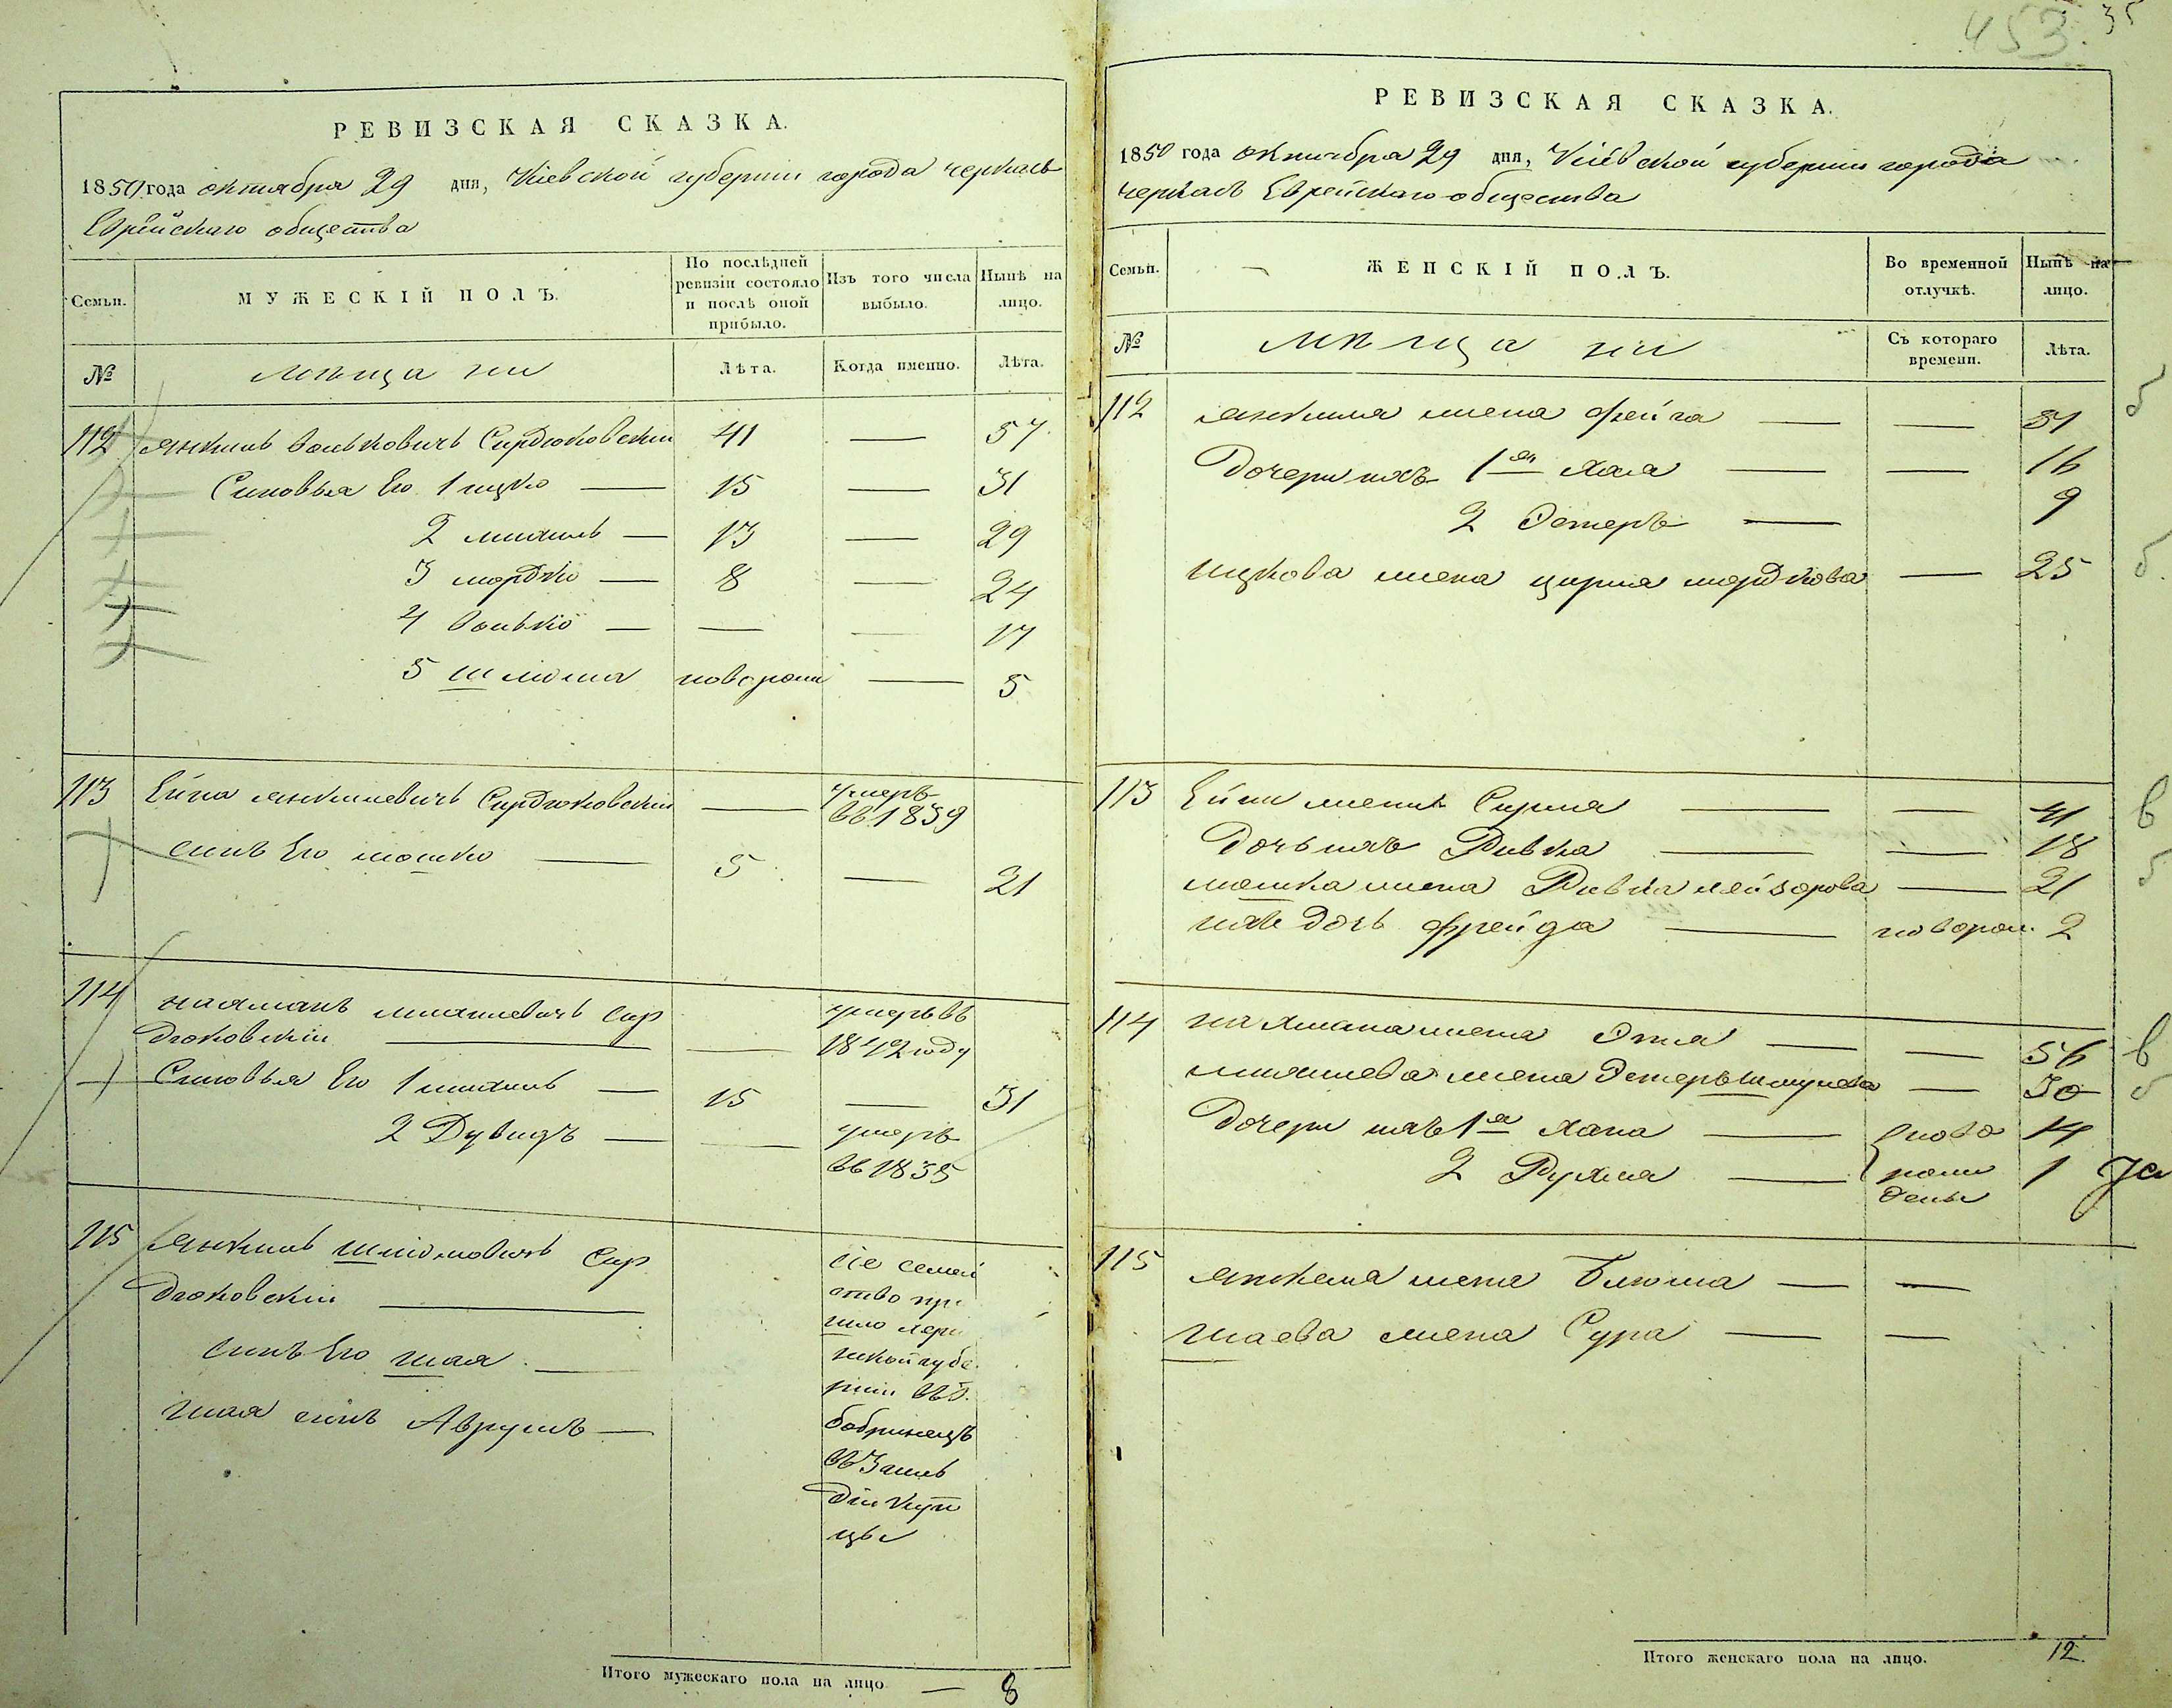 453. 35
РЕВИЗСКАЯ СКАЗКА.
1850 года октября 29 дня, Кіевской губерніи города черкасъ
Еврейскаго общества
Семьи.
МУЖЕСКІЙ ПОЛЪ.
По послѣдней ревизіи состояло и послѣ оной прибыло.
Изъ того числа выбыло.
Нынѣ на лицо.
№
мѣщани
Лѣта.
Когда именно.
Лѣта.
112 Янкиль Вольковичъ Сирдюковскій 41 — 57
Синовья Его 1 ицко — 15 — 31
2 михиль — 13 — 29
3 мордко — 8 — 24
4 волько — — — 17
5 шлиома новорож — 5
113 Ейна янкилевичъ Сирдюковскій — умеръ въ 1839
синъ Его мошко — 5 — 21
114 нахманъ михилевичъ Сир
дюковскій — — умеръ въ 1842 году
Синовья Его 1 михиль — 15 — 31
2 Дувидъ — — умеръ въ 1835
115 Янкиль шлиомовичъ Сир
дюковскій —
синъ Его шая —
шая синъ Аврумъ —
сіе семей
ство при
шло хер
ской губе
рніи въ г.
бобринецъ
въ 3 гиль
діи купи
цы
Итого мужескаго пола на лицо — 8
РЕВИЗСКАЯ СКАЗКА.
1850 года октября 29 дня, Кіевской губерніи города
черкасъ Еврейскаго общества
Семьи.
ЖЕНСКІЙ ПОЛЪ.
Во временной отлучкѣ.
Нынѣ на лицо.
№
мѣщани
Съ котораго времени.
Лѣта.
112 янкиля жена фейга — — 51 б
Дочери ихъ 1я хая — — 16
2 Эстеръ — 9
ицкова жена цирля мордкова — 25 б.
113 Ейни жена Сирля — — 41 в
Дочь ихъ Ривка — — 18
мошка жена Ривка лейзорова — 21 б
ихъ дочь фрейда — новорож. 2
114 нахмана жена Этля — — 56 в
михилева жена Эстеръ шмулева — 30 б
Дочери ихъ 1я хана — 4
2 Рухля — 1
ново
рож
дены
115 янкеля жена Блюма — —
шаева жена Сура — —
Итого женскаго пола на лицо. 12.